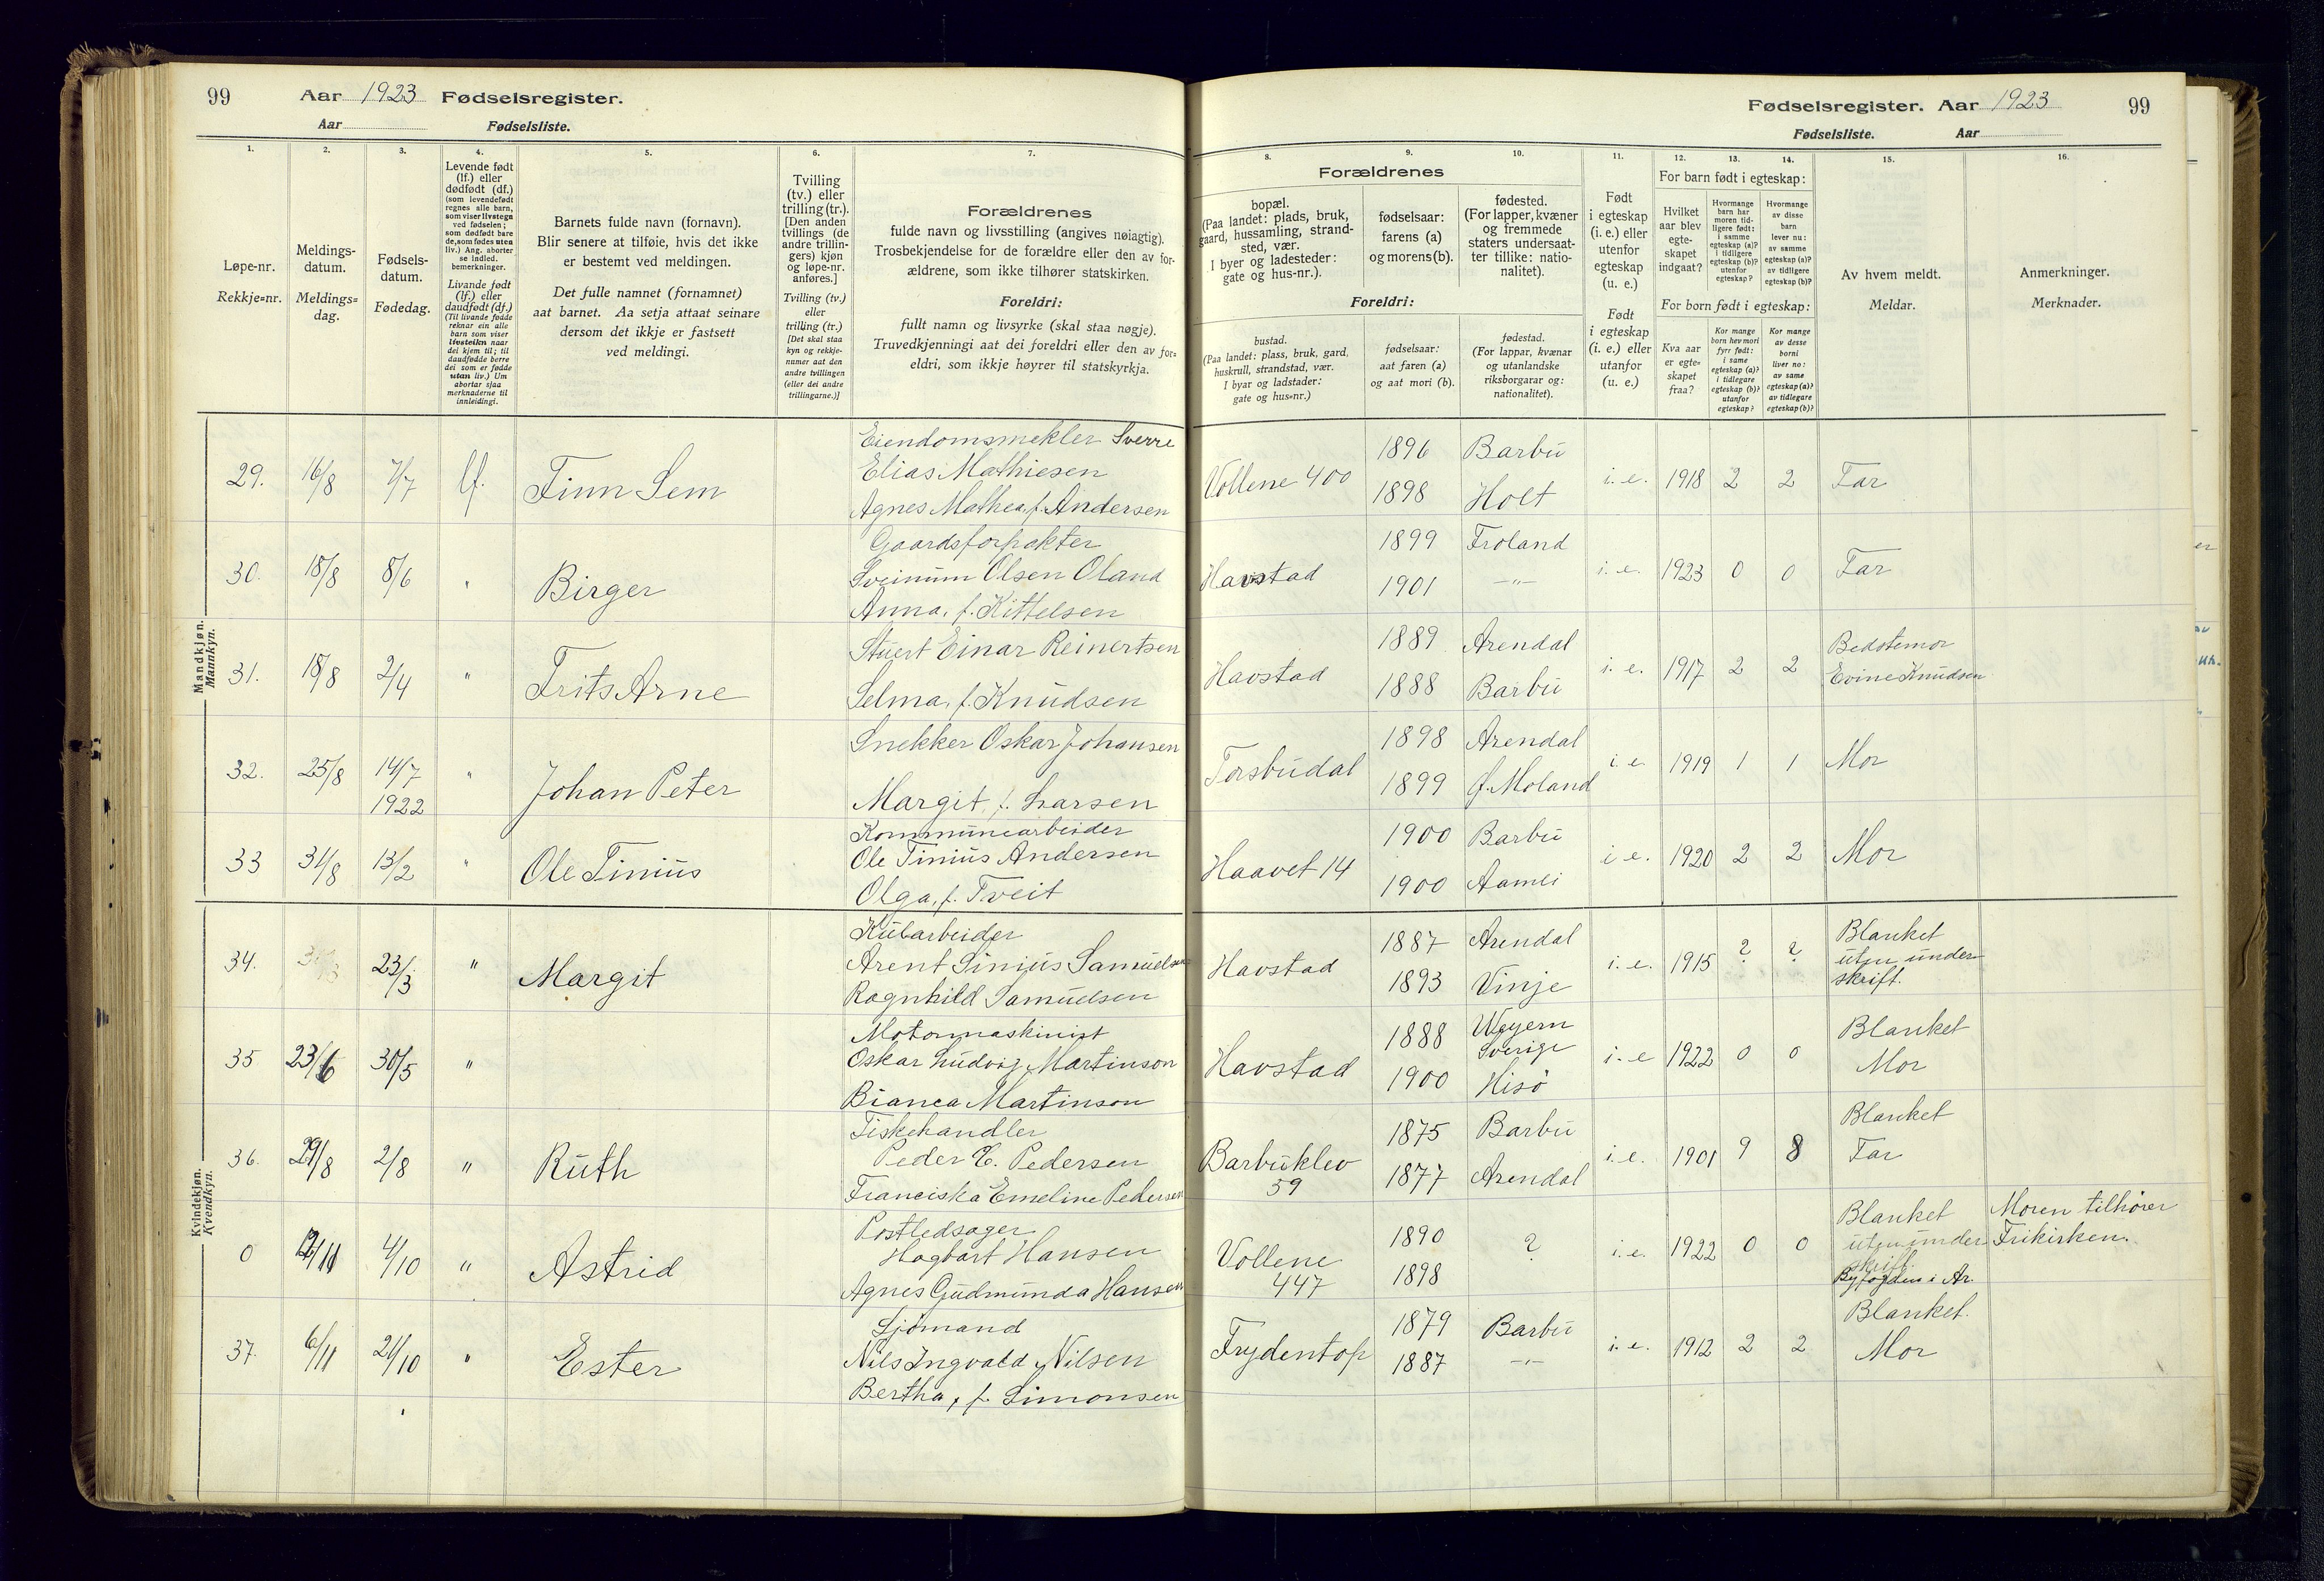 99 Aar 1923 Fødselsregister.
Aar Fødselsliste.
1. 2. 3. 4. 5. 6. 7.
Løpe-nr.
Rekkje=nr.
Meldings-
datum.
Meldings=
dag.
Fødsels-
datum.
Fødedag.
Levende født
(lf.) eller
dødfødt (df.)
(som levendefødt
regnes alle barn,
som viser livstegn
ved fødselen;
som dødfødt bare
de, som fødes uten
liv.) Ang. aborter
se indled.
bemerkninger.
Livande født
(lf.) eller
daudfødt (df.)
(Til livande fødde
reknar ein alle
barn som viser
livsteikn naar
dei kjem til; til
daudfødde berre
dei som er fødde
utan liv.) Um
abortar sjaa
merknaderne til
innleidingi.
Barnets fulde navn (fornavn).
Blir senere at tilføie, hvis det ikke
er bestemt ved meldingen.
Det fulle namnet (fornamnet)
aat barnet. Aa setja attaat seinare
dersom det ikkje er fastsett
ved meldingi.
Tvilling
(tv.) eller
trilling (tr.).
[Den anden
tvillings (de
andre trillin-
gers) kjøn
og løpe-nr.
anføres.]
Tvilling (tv.)
eller
trilling (tr.)
[Det skal staa
kyn og rekkje-
numer aat den
andre tvillingen
(eller dei andre
trillingarne.)]
Forældrenes
fulde navn og livsstilling (angives nøiagtig).
Trosbekjendelse for de forældre eller den av for-
ældrene, som ikke tilhører statskirken.
Foreldri:
fullt namn og livsyrke (skal staa nøgje).
Truvedkjenningi aat dei foreldri eller den av for=
eldri, som ikkje høyrer til statskyrkja.
Mandkjøn.
Mannkyn.
29. 16/8 7/7 lf. Finn Sem
Eiendomsmekler Sverre
Elias Mathiesen
Agnes Mathea, f. Andersen
30. 18/8 8/6 " Birger
Gaardsforpakter
Sveinum Olsen Oland
Anna, f. Kittelsen
31. 18/8 2/4 " Frits Arne
Stuert Einar Reinertsen
Selma, f. Knudsen
32. 25/8 14/7 1922 " Johan Peter
Snekker Oskar Johansen
Margit, f. Larsen
33 31/8 13/2 " Ole Tinius
Kommunearbeider
Ole Tinius Andersen
Olga, f. Tveit
Kvindekjøn.
Kvendkyn.
34. 23/3 " Margit
Kularbeider
Arent Sinius Samuelsen
Ragnhild Samuelsen
35 23/6 30/5 "
Motormaskinist
Oskar Ludvig Martinson
Bianca Martinson
36. 29/8 2/8 " Ruth
Fiskehandler
Peder C. Pedersen
Franciska Emeline Pedersen
0 4/10 " Astrid
Postledsager
Hagbart Hansen
Agnes Gudmunda Hansen
37. 6/11 21/10 " Ester
Sjömand
Nils Ingvald Nilsen
Bertha, f. Simonsen
Fødselsregister. Aar 1923 99
Fødselsliste. Aar
8. 9. 10. 11. 12. 13. 14. 15. 16.
Forældrenes
bopæl.
(Paa landet: plads, bruk,
gaard, hussamling, strand-
sted, vær.
I byer og ladesteder:
gate og hus-nr.).
fødselsaar:
farens (a)
og morens (b).
fødested.
(For lapper, kvæner
og fremmede
staters undersaat-
ter tillike: natio-
nalitet).
Foreldri:
bustad.
(Paa landet: plass, bruk, gard,
huskrull, strandstad, vær.
I byar og ladstader:
gate og hus=nr.)
fødselsaar:
aat faren (a)
og aat mori (b).
fødestad.
(For lappar, kvænar
og utanlandske
riksborgarar og:
nationalitet).
Født
i egteskap
(i. e.) eller
utenfor
egteskap
(u. e.)
Født
i egteskap
(i. e.) eller
utanfor
(u. e.)
For barn født i egteskap:
Hvilket
aar blev
egte-
skapet
indgaat?
Hvormange
barn har
moren tid-
ligere født:
i samme
egteskap (a)?
i tidligere
egteskap (b)?
utenfor
egteskap?
Hvormange
av disse
barn
lever nu:
av samme
egteskap (a)?
av tidligere
egteskap (b)?
For born født i egteskap:
Kva aar
er egte-
skapet
fraa?
Kor mange
born hev mori
fyrr født:
i same
egteskap (a)?
i tidlegare
egteskap (b)?
utanfor
egteskap?
Kor mange
av desse
borni
liver no:
av same
egteskap (a)?
av tidlegare
egteskap (b)?
Av hvem meldt.
Meldar.
Anmerkninger.
Merknader.
Vollene 400 1896 Barbu i. e. 1918 2 2 Far
1898 Holt
Havstad 1899 Froland i. e. 1923 0 0 Far
1901 —"—
Havstad 1889 Arendal i. e. 1917 2 2 Bedstemor
1888 Barbu Evine Knudsen
Torsbudal 1898 Arendal i. e. 1919 1 1 Mor
1899 Ø. Moland
Haavet 14 1900 Barbu i. e. 1920 2 2 Mor
1900 Aamli
Havstad 1887 Arendal i. e. 1915 ? ? Blanket
1893 Vinje uten under-
skrift.
Havstad 1888 Sverige i. e 1922 0 0 Blanket
1900 Hisö Mor
Barbuklev 59 1875 Barbu i. e. 1901 9 8 Blanket
1877 Arendal Far
Vollene 447 1890 ? i. e. 1922 0 0 Blanket Moren tilhører
1898 uten under- Frikirken.
skrift.
Byfogden i Ar.
Frydentop 1879 Barbu i. e. 1912 2 2 Blanket.
1887 —"— Mor